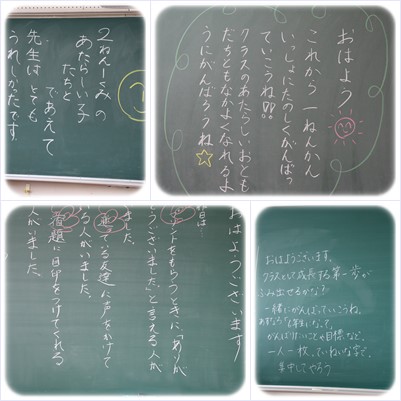 2ねん一くみの
あたらしい子
たちと
であえて
先生は とても
うれしかったです。
おはよう
これから 一ねんかん
いっしょにたのしくがんばっ
ていこうね!!
クラスのあたらしいおとも
だちともなかよくなれるよ
うにがんばろうね
おはようございます
昨日は
プリントをもらうときに、「ありが
とうございました」と言える人が
いました。
遊んでいる友達に声をかけて
いる人がいました。
宿題に目印をつけてくれる
人がいました。
おはようございます。
クラスとして成長する第一歩が
ふみ出せるかな?
一緒にがんばっていこうね。
年生になって、
がんばりたいことや目標など、
一人一枚、ていねいな字で、
集中してやろう